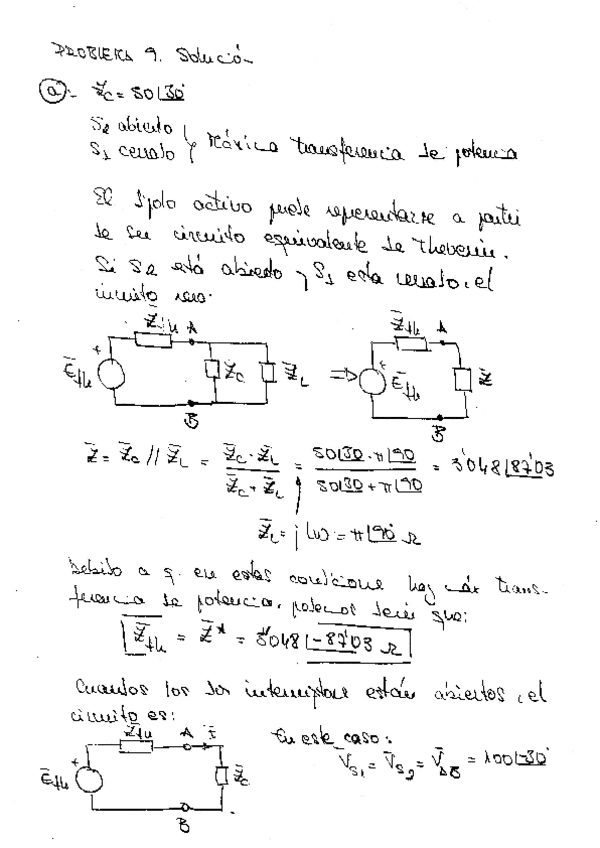 PROBLEMA 9. Solución
a) Z̄c = 50∠30
S2 abierto
S1 cerrado } Máxima transferencia de potencia
El dipolo activo puede representarse a partir
de su circuito equivalente de Thevenin.
Si S2 está abierto y S1 esta cerrado, el
circuito será:
Z̄th A
Ēth Z̄c Z̄L
B
⇒
Z̄th A
Ēth Z̄
B
Z̄ = Z̄c // Z̄L = Z̄c · Z̄L / Z̄c + Z̄L = 50∠30 · π∠90 / 50∠30 + π∠90 = 3'048∠87'03
Z̄L = jLω = π∠90 Ω
Debido a q. en estas condicione hay máx trans-
ferencia de potencia, podemos decir que:
Z̄th = Z̄* = 3'048∠-87'03 Ω
Cuando los dos interruptore están abiertos, el
circuito es:
Z̄th A Ī
Ēth Z̄c
B
En este caso:
V̄S1 = V̄S2 = V̄AB = 100∠-30